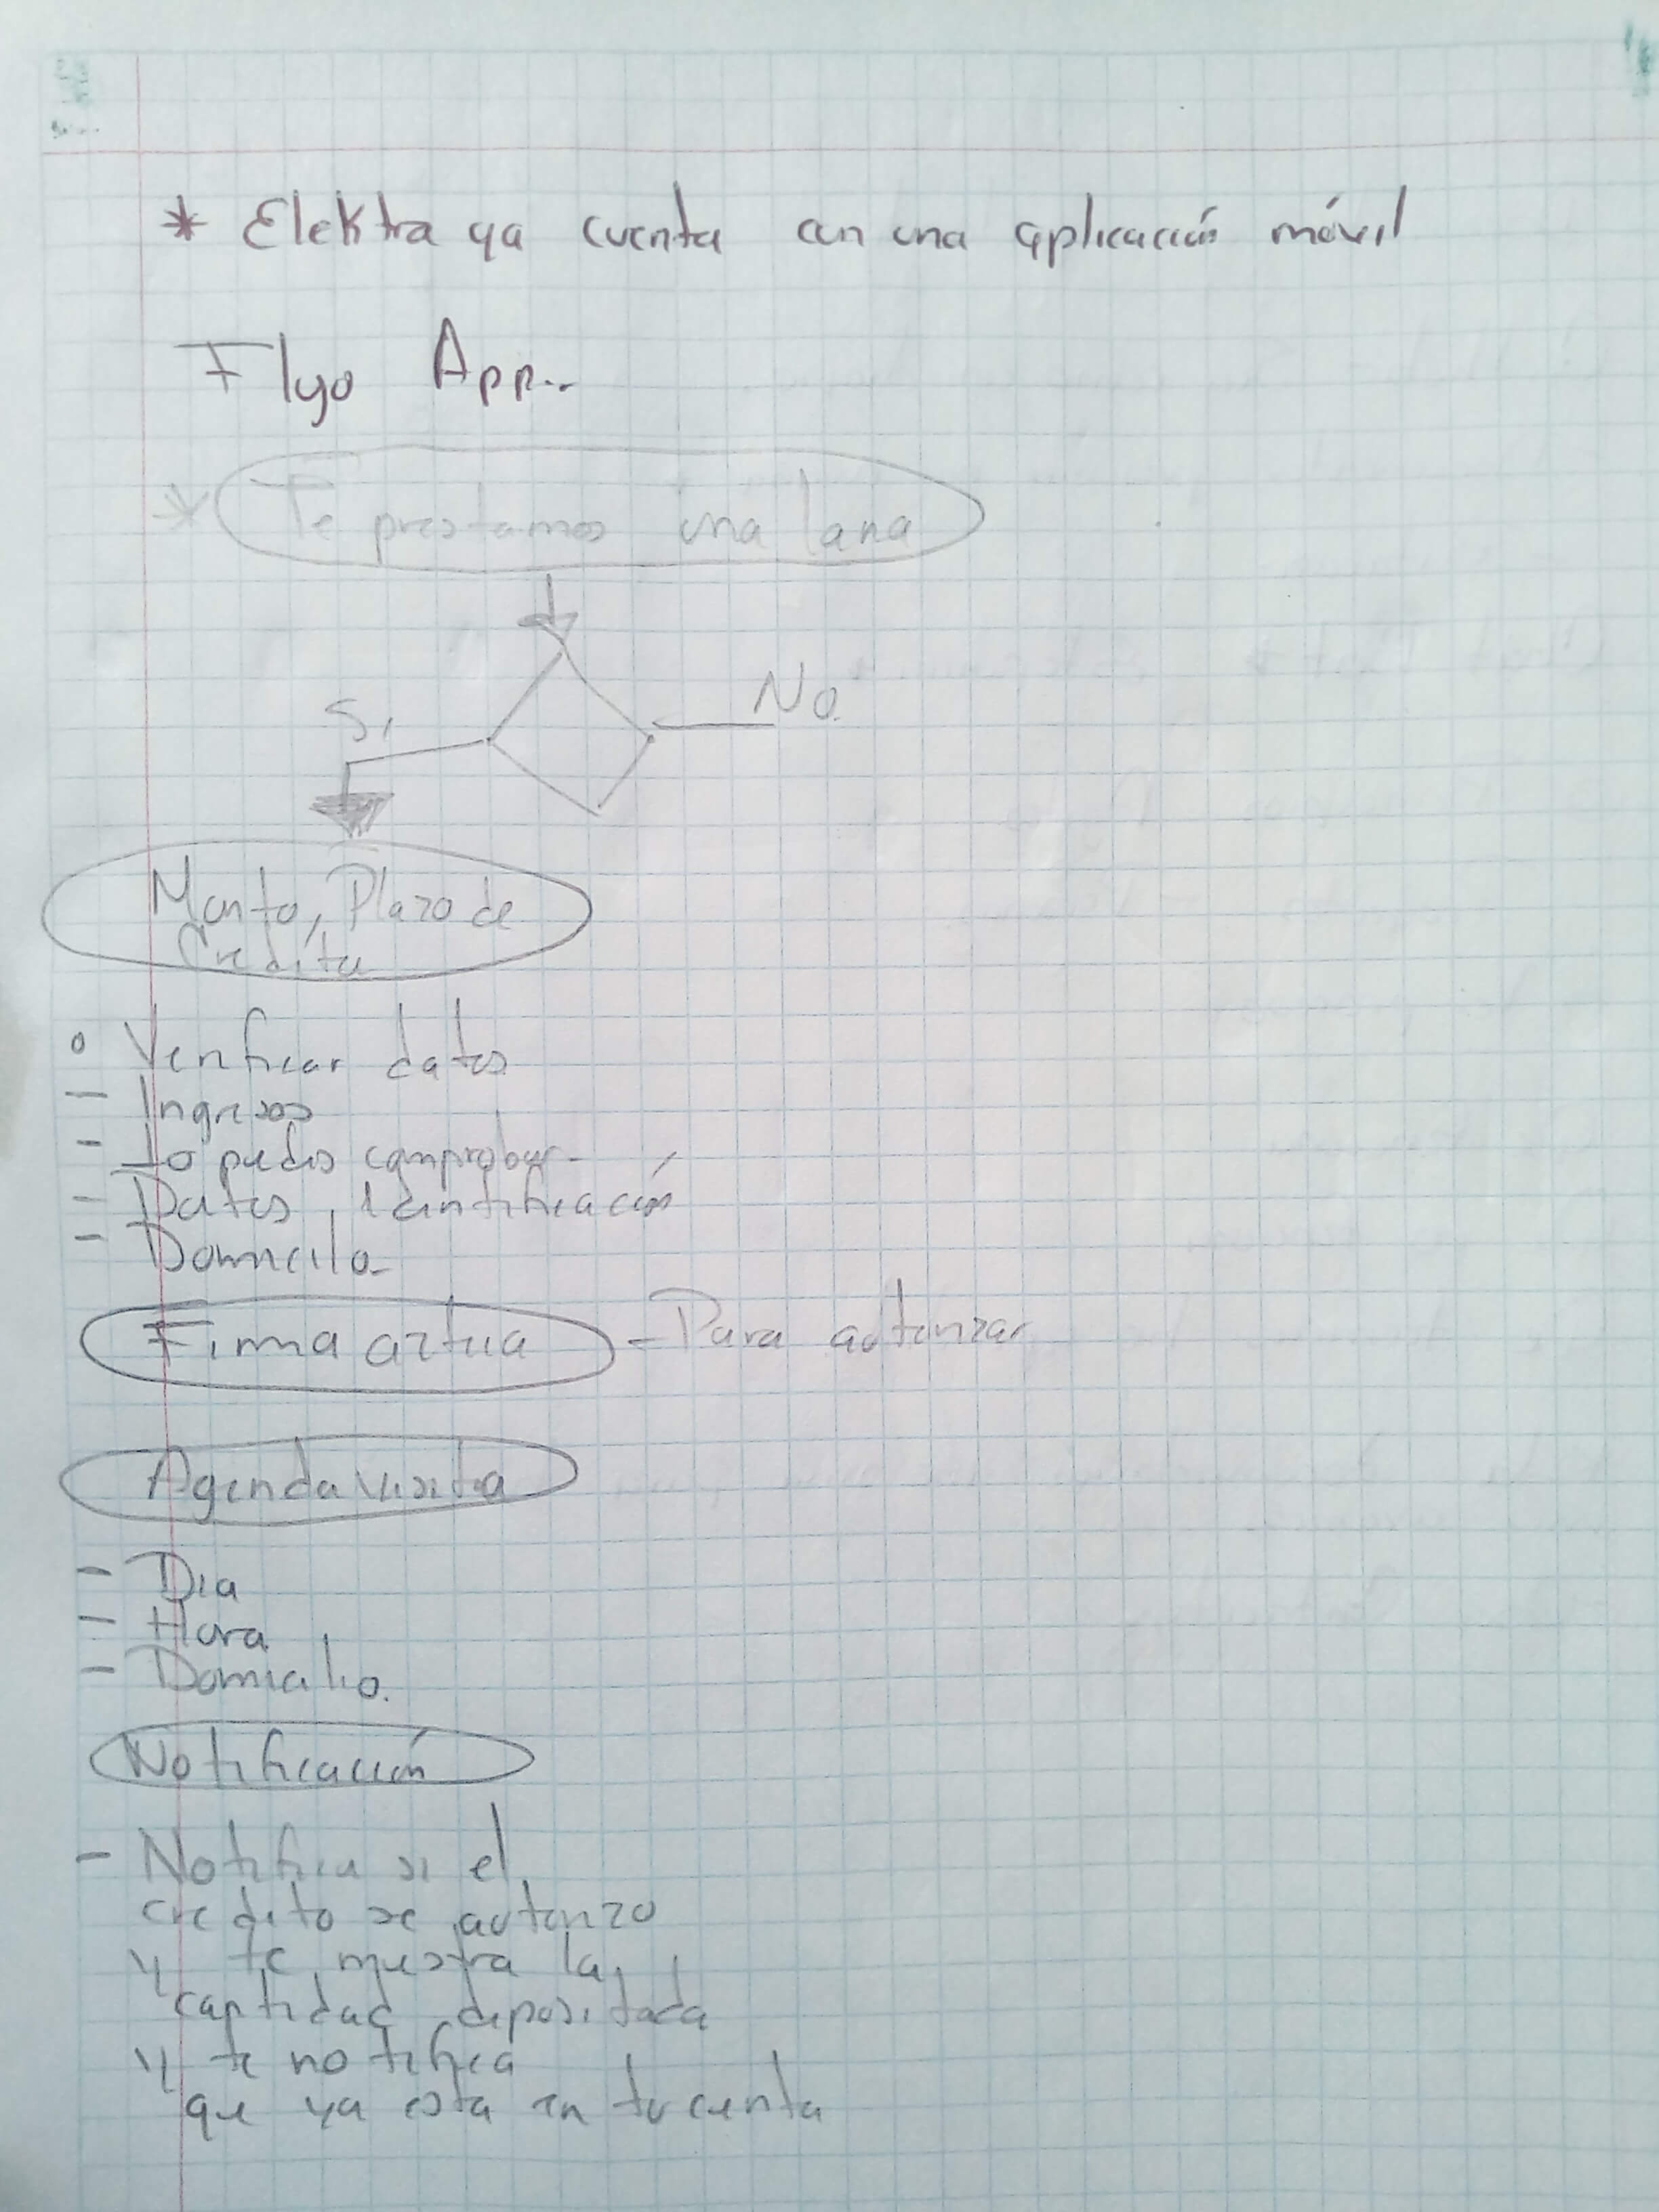 * Elektra ya cuenta con una aplicación móvil
Flujo App..
* Te prestamos una lana
Si
No.
Monto, Plazo de
Credito
° Verificar datos
- Ingresos
- Lo puedes comprobar-
- Datos, Identificación
- Domicilo
Firma azteca - Para autorizar
Agenda visita
- Dia
- Hora
- Domicilio.
Notificación
- Notifica si el
credito se autorizo
y te muestra la
cantidad depositada
y te notifica
que ya esta en tu cuenta